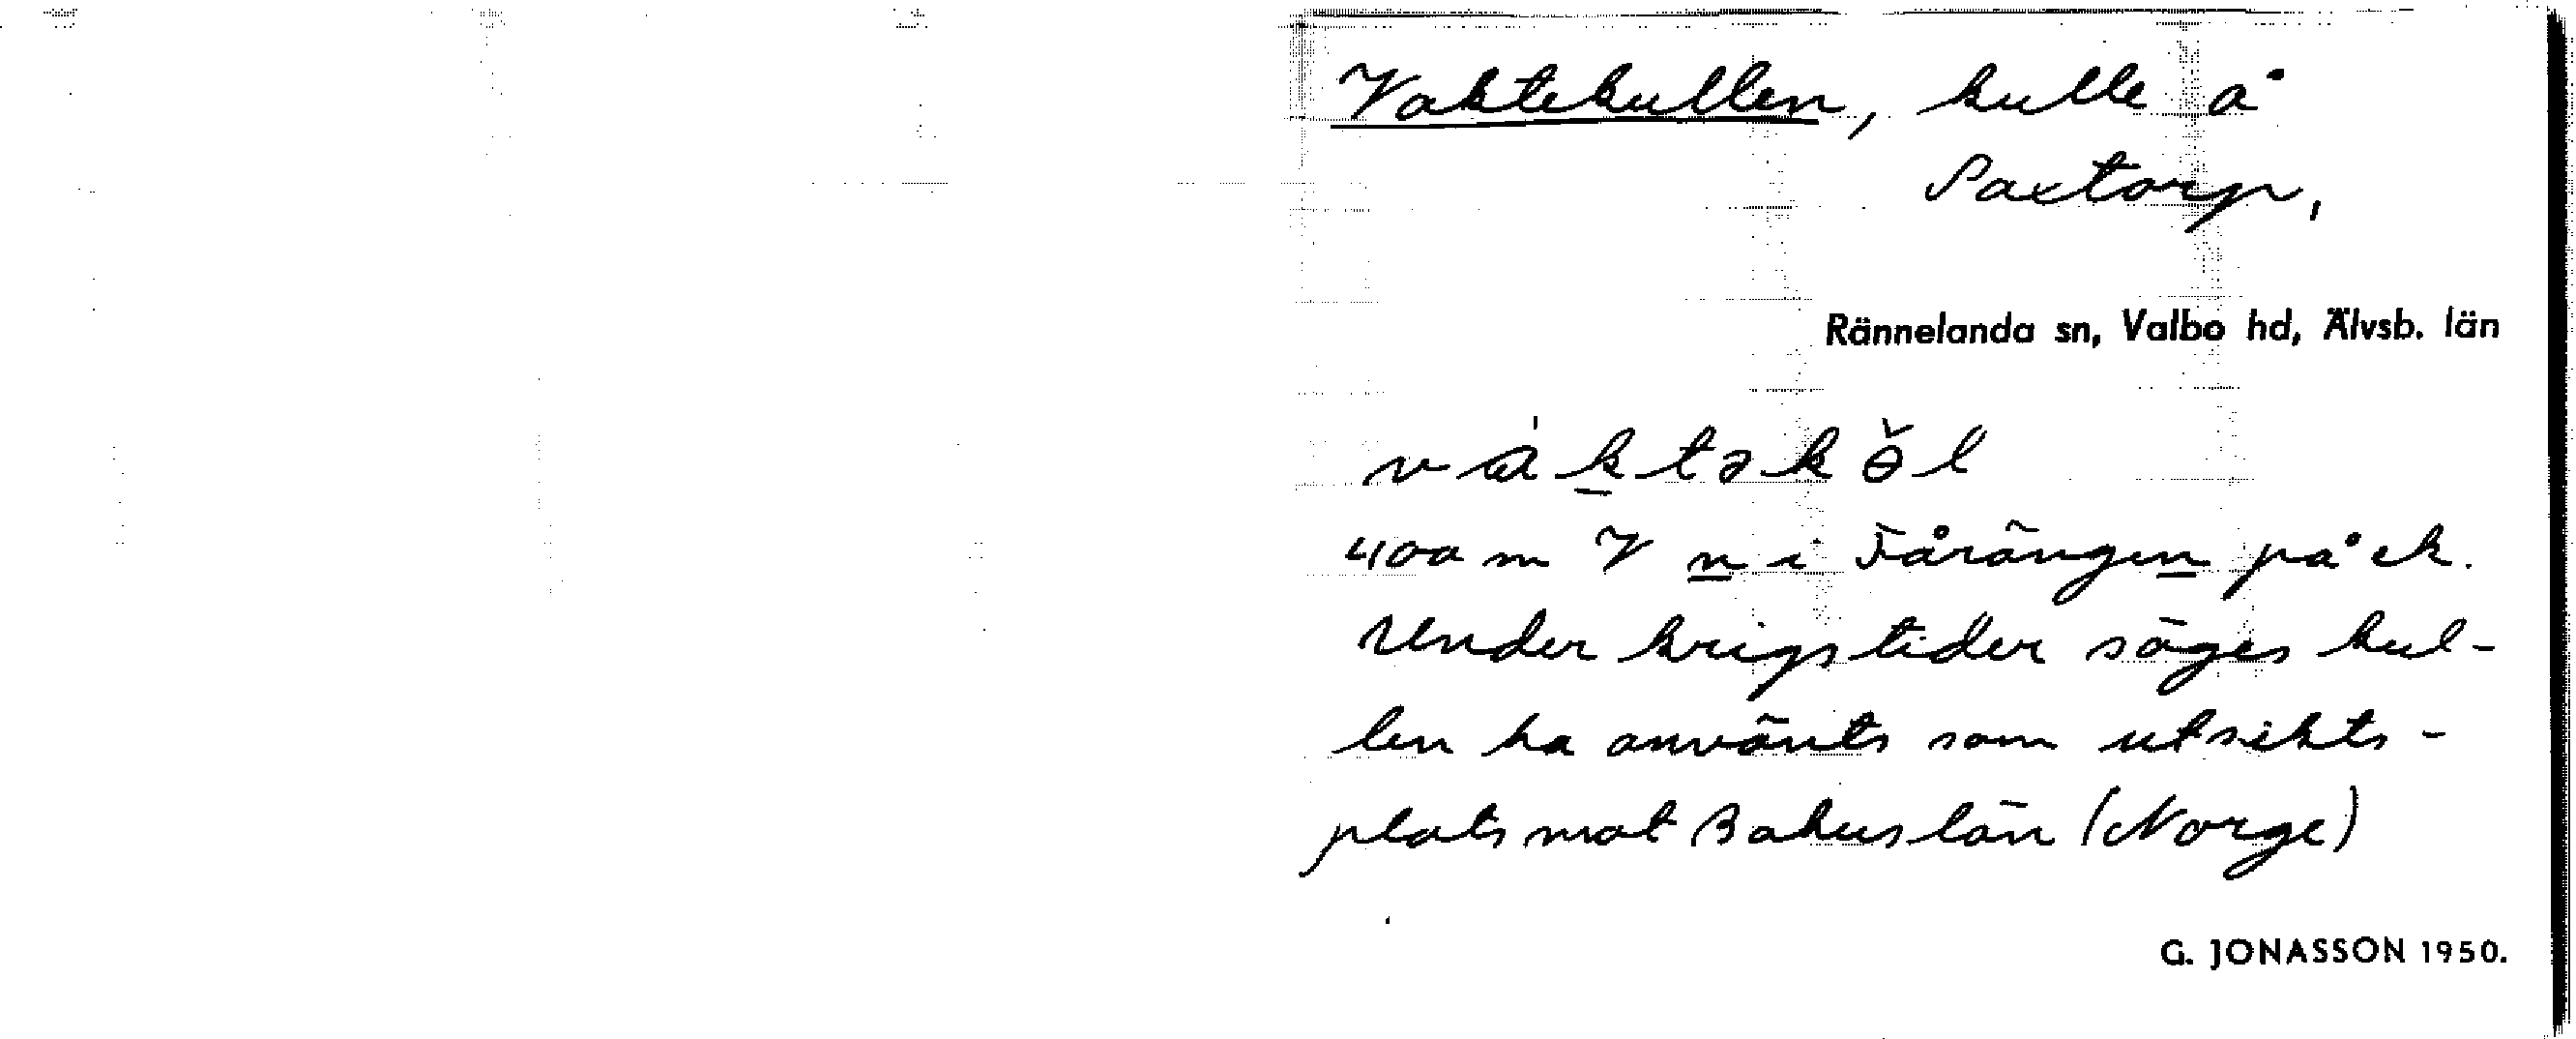 Vaktekullen, kulle å
Saxtorp,
Rännelanda sn, Valbo hd, Älvsb. län
va̍k̲təkө̌l
400 m V n̲ i Fårängen̲ på ek.
Under krigstider säges kul-
len ha använts som utsikts-
plats mot Bohuslän (Norge)
G. JONASSON 1950.